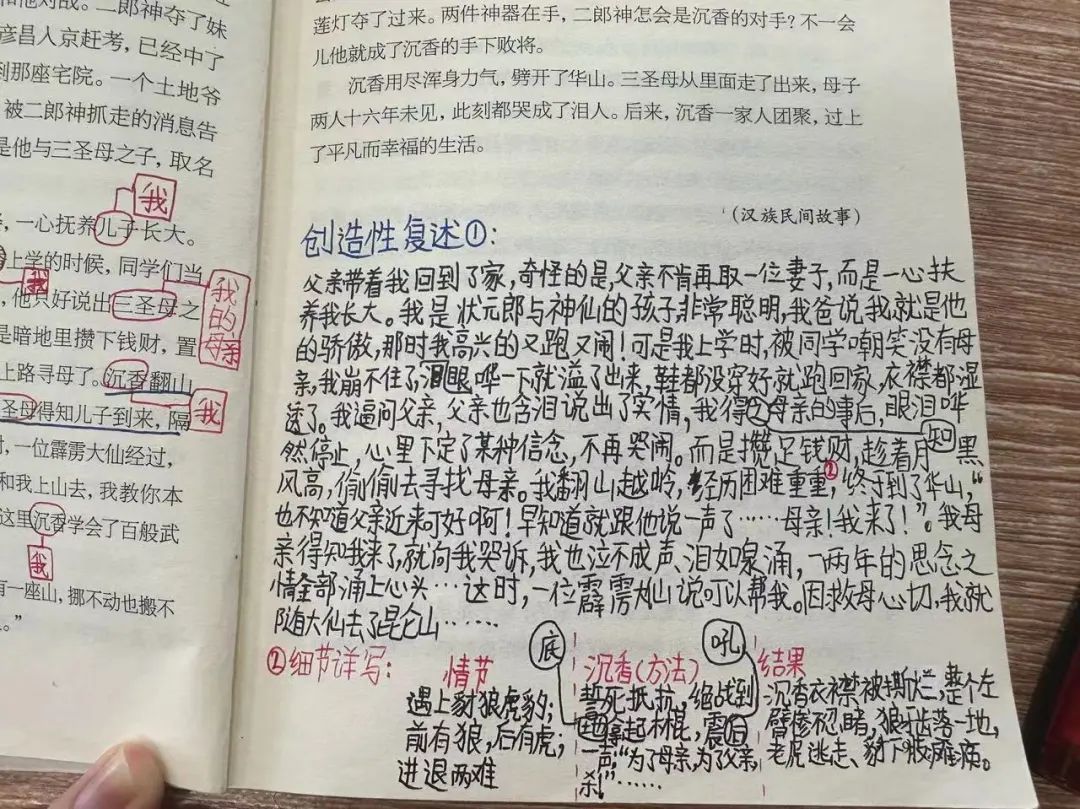 和他对战。二郎神夺了妹
彦昌人京赶考，已经中了
到那座宅院。一个土地爷
被二郎神抓走的消息告
是他与三圣母之子，取名
我
，一心抚养儿子长大。
上学的时候，同学们当
我
我的母亲
，他只好说出三圣母之
是暗地里攒下钱财，置
上路寻母了。沉香翻山
我
圣母得知儿子到来，隔
，一位霹雳大仙经过，
和我上山去，我教你本
这里沉香学会了百般武
我
有一座山，挪不动也搬不
。”
莲灯夺了过来。两件神器在手，二郎神怎会是沉香的对手？不一会
儿他就成了沉香的手下败将。
沉香用尽浑身力气，劈开了华山。三圣母从里面走了出来，母子
两人十六年未见，此刻都哭成了泪人。后来，沉香一家人团聚，过上
了平凡而幸福的生活。
（汉族民间故事）
创造性复述①：
父亲带着我回到了家，奇怪的是，父亲不肯再取一位妻子，而是一心扶
养我长大。我是状元郎与神仙的孩子非常聪明，我爸说我就是他
的骄傲，那时我高兴的又跑又闹！可是我上学时，被同学嘲笑没有母
亲，我崩不住了，泪眼哗一下就溢了出来，鞋都没穿好就跑回家，衣襟都湿
透了。我逼问父亲，父亲也含泪说出了实情，我得知母亲的事后，眼泪哗
然停止，心里下定了某种信念，不再哭闹。而是攒足钱财，趁着月黑
风高，偷偷去寻找母亲。我翻山越岭，经历困难重重，②终寻到了华山，“
也不知道父亲近来可好啊！早知道就跟他说一声了……母亲！我来了！”。我母
亲得知我来了，就向我哭诉，我也泣不成声、泪如泉涌，一两年的思念之
情全部涌上心头…这时，一位霹雳大仙说可以帮我。因救母心切，我就
随大仙去了昆仑山……
②细节详写：
情节
遇上豺狼虎豹；
前有狼，后有虎；
进退两难
底
沉香（方法）
吼
誓死抵抗，绝战到
拿起木棍，震
一声；“为了母亲，为了父亲，
杀！”……
结果
沉香衣襟被撕烂，整个左
臂惨不忍睹，狼牙齿落一地，
老虎逃走、豹下肢瘫痪。